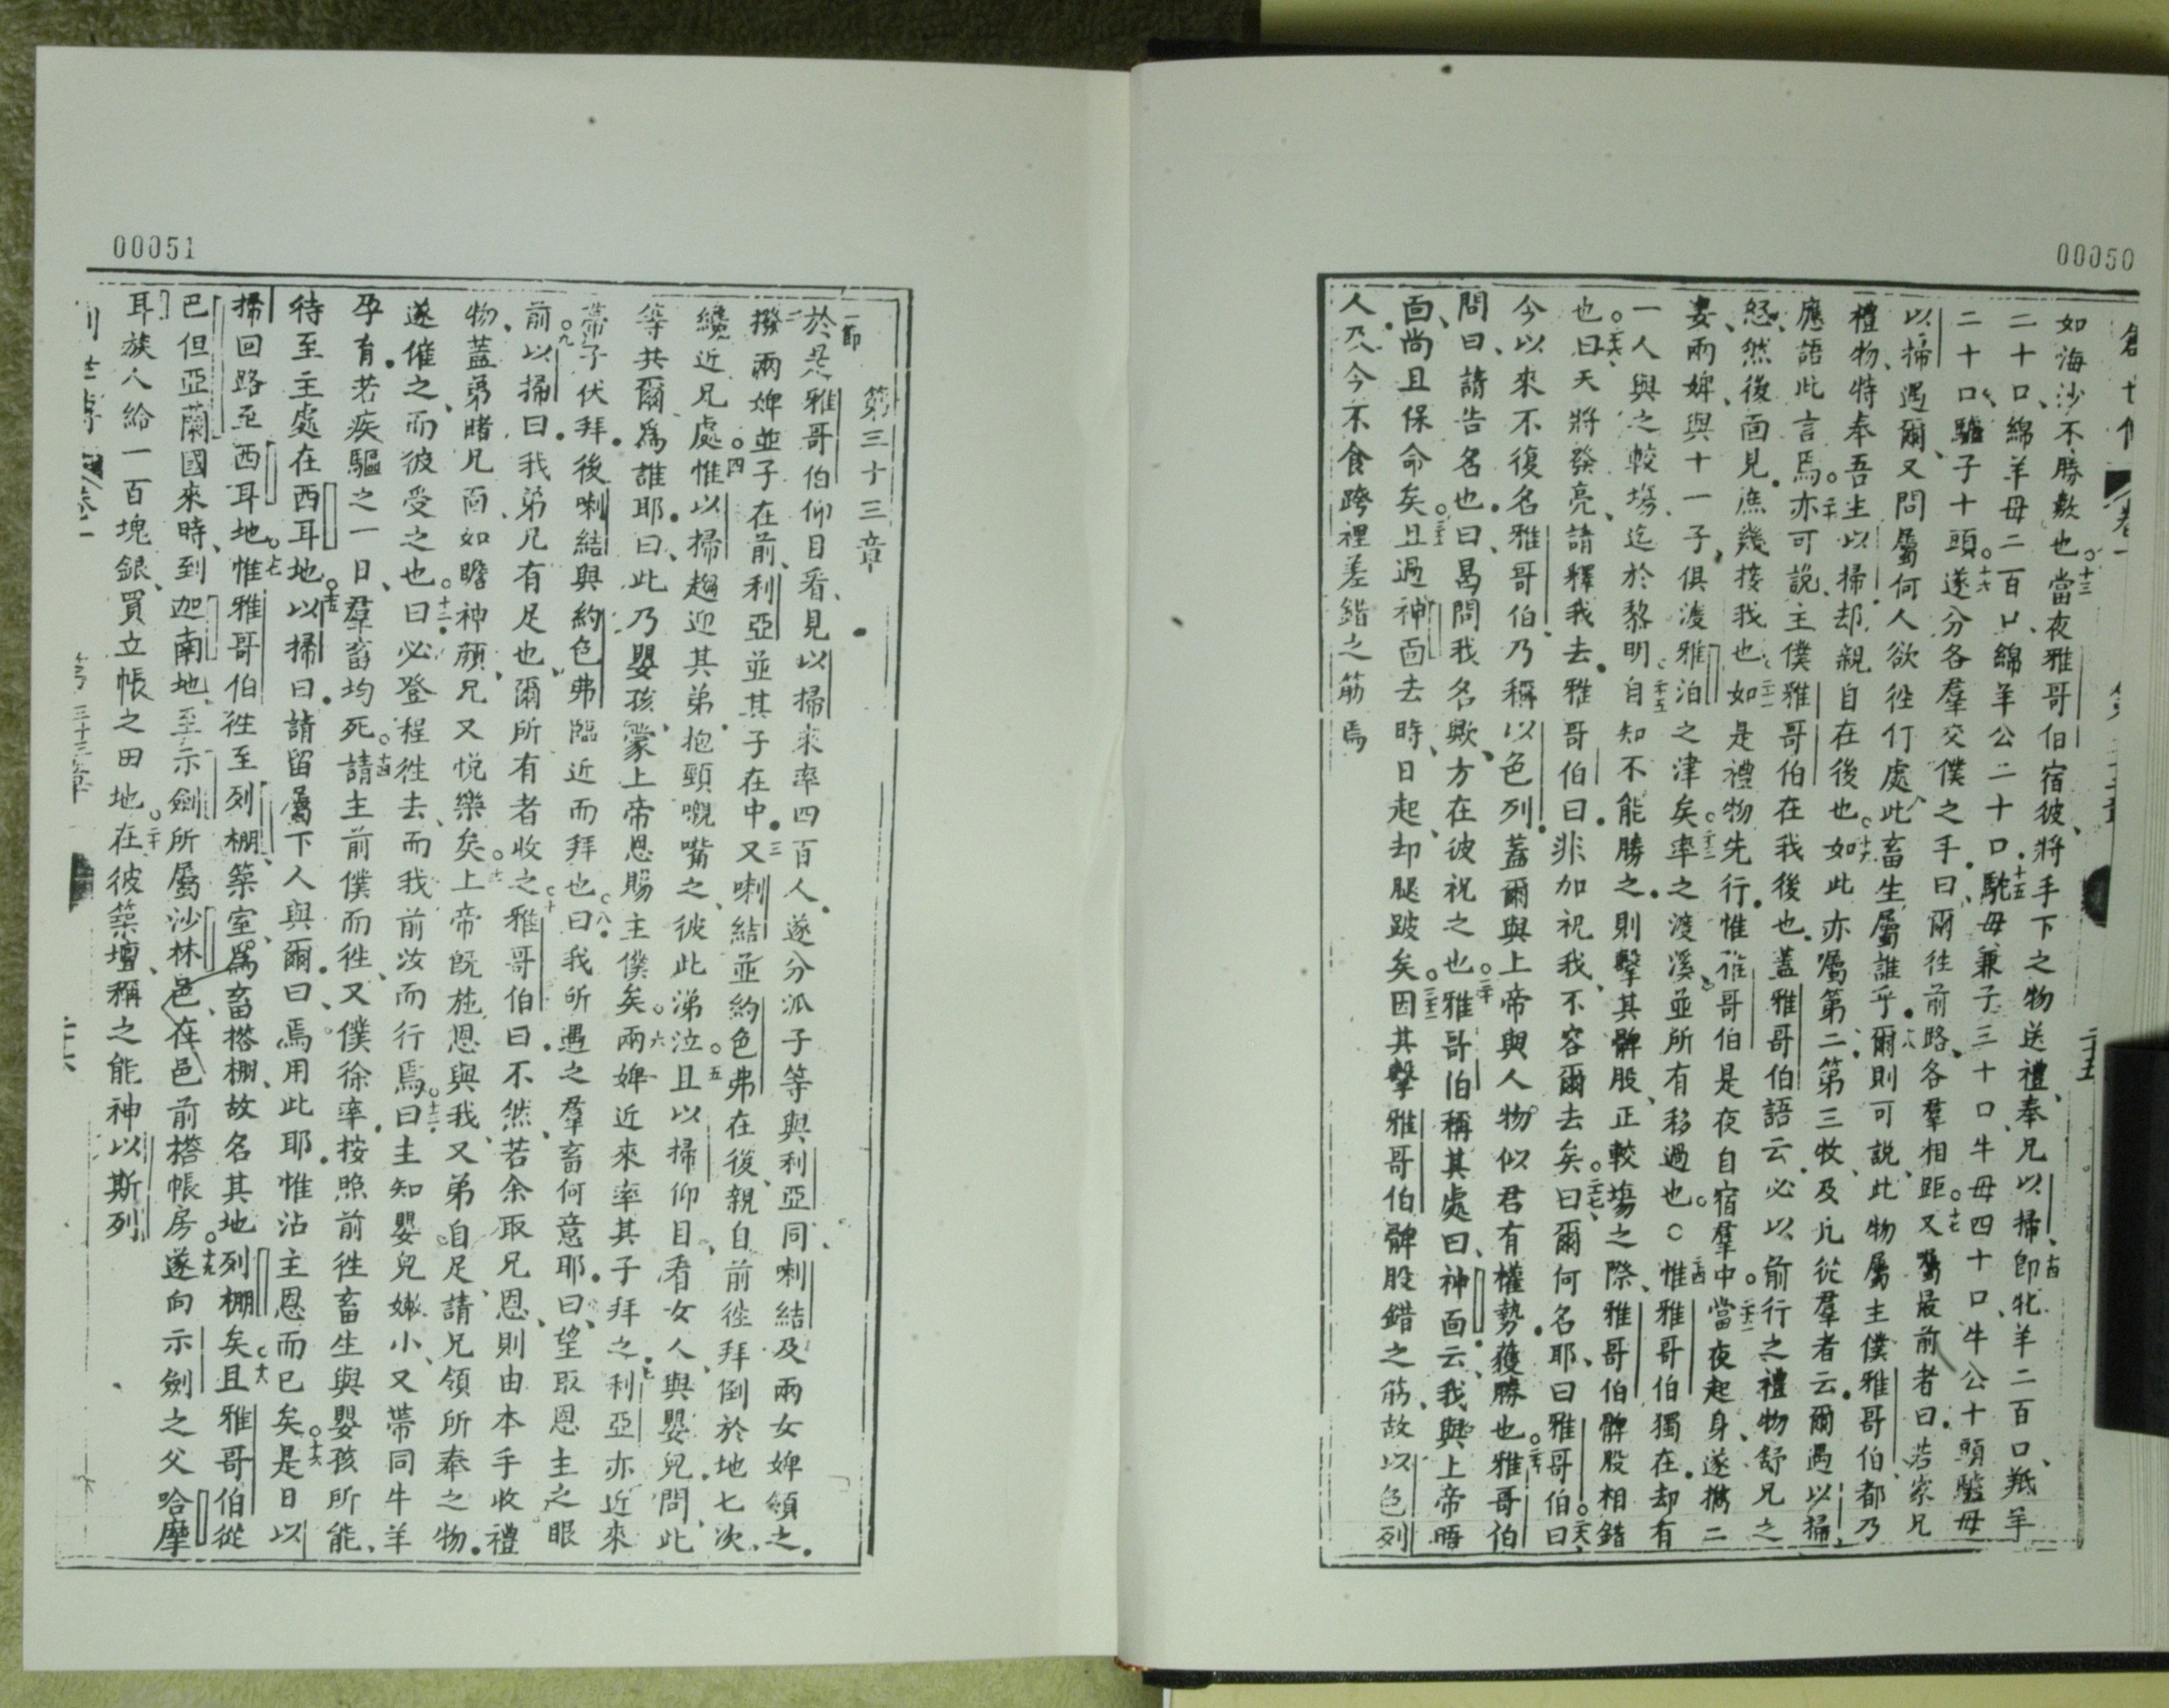 00050
如海沙不勝數也○十三當夜雅哥伯宿彼、將手下之物送禮、奉兄以掃、十四即牝羊二百口、羝羊
二十口、綿羊母二百口、綿羊公二十口、十五駝母兼子三十口、牛母四十口、牛公十頭、驢母
二十口、驢子十頭○十六遂分各羣交僕之手、曰爾往前路、各羣相距○十七又囑最前者曰、若家兄
以掃遇爾、又問屬何人、欲徃何處、此畜生屬誰乎、十八爾則可說、此物屬主僕雅哥伯都乃
禮物、特奉吾主以掃、却親自在後也○十九如此亦囑第二、第三牧、及凡從羣者云、爾遇以掃、
應語此言焉○二十亦可說、主僕雅哥伯在我後也、蓋雅哥伯語云、必以前行之禮物舒兄之
怒、然後面見、庶幾接我也、二十一如是禮物先行、惟雅哥伯是夜自宿羣中○二十二當夜起身、遂携二
妻、兩婢、與十一子、俱渡雅泊之津矣○二十三率之渡溪、並所有移過也○二十四惟雅哥伯獨在、却有
一人與之較塲、迄於黎明○二十五自知不能勝之、則擊其髀股、正較塲之際、雅哥伯髀股相錯
也○二十六曰、天將發亮、請釋我去、雅哥伯曰、非加祝我、不容爾去矣○二十七曰、爾何名耶、曰雅哥伯○二十八曰、
今以來不復名雅哥伯、乃稱以色列、蓋爾與上帝與人物似君有權勢、獲勝也○二十九雅哥伯
問曰、請告名也、曰、曷問我名歟、方在彼祝之也○三十雅哥伯稱其處曰、神面、云、我與上帝晤
面、尚且保命矣○三十一且過神面去時、日起、却腿跛矣○三十二因其擊雅哥伯髀股錯之筋、故以色列
人、乃今不食跨裡差錯之筋焉
00051
第三十三章
一節於是雅哥伯仰目看見以掃來、率四百人、遂分派子等與利亞、同喇結及兩女婢領之、
二撥兩婢並子在前、利亞並其子在中、又喇結並約色弗在後、三親自前徃、拜倒於地七次、
纔近兄處○四惟以掃趨迎其弟、抱頸嘅嘴之、彼此涕泣○五且以掃仰目、看女人、與嬰兒、問、此
等共爾爲誰耶、曰、此乃嬰孩、蒙上帝恩賜主僕矣○六兩婢近來、率其子拜之、七利亞亦近來
帶子伏拜、後喇結與約色弗臨近而拜也○八曰、我所遇之羣畜何意耶、曰、望取恩主之眼
前○九以掃曰、我弟、兄有足也、爾所有者收之○十雅哥伯曰、不然、若余取兄恩、則由本手收禮
物、蓋弟睹兄面、如瞻神顏、兄又悅樂矣○十一上帝旣施恩與我、又弟自足、請兄領所奉之物、
遂催之、而彼受之也○十二曰、必登程徃去、而我前汝而行焉○十三曰、主知嬰兒嫩小、又帶同牛羊
孕有、若疾驅之一日、羣畜均死○十四請主前僕而徃、又僕徐率、按照前徃畜生與嬰孩所能、
待至主處在西耳地○十五以掃曰、請留屬下人與爾、曰、焉用此耶、惟沾主恩而已矣○十六是日以
掃回路至西耳地○十七惟雅哥伯徃至列棚、築室、爲畜搭棚、故名其地列棚矣○十八且雅哥伯從
巴但亞蘭國來時、到迦南地、至示劍所屬沙林邑、在邑前搭帳房○十九遂向示劍之父哈摩
耳族人給一百塊銀、買立帳之田地○二十在彼築壇、稱之能神以斯列
第三十三章
二十六